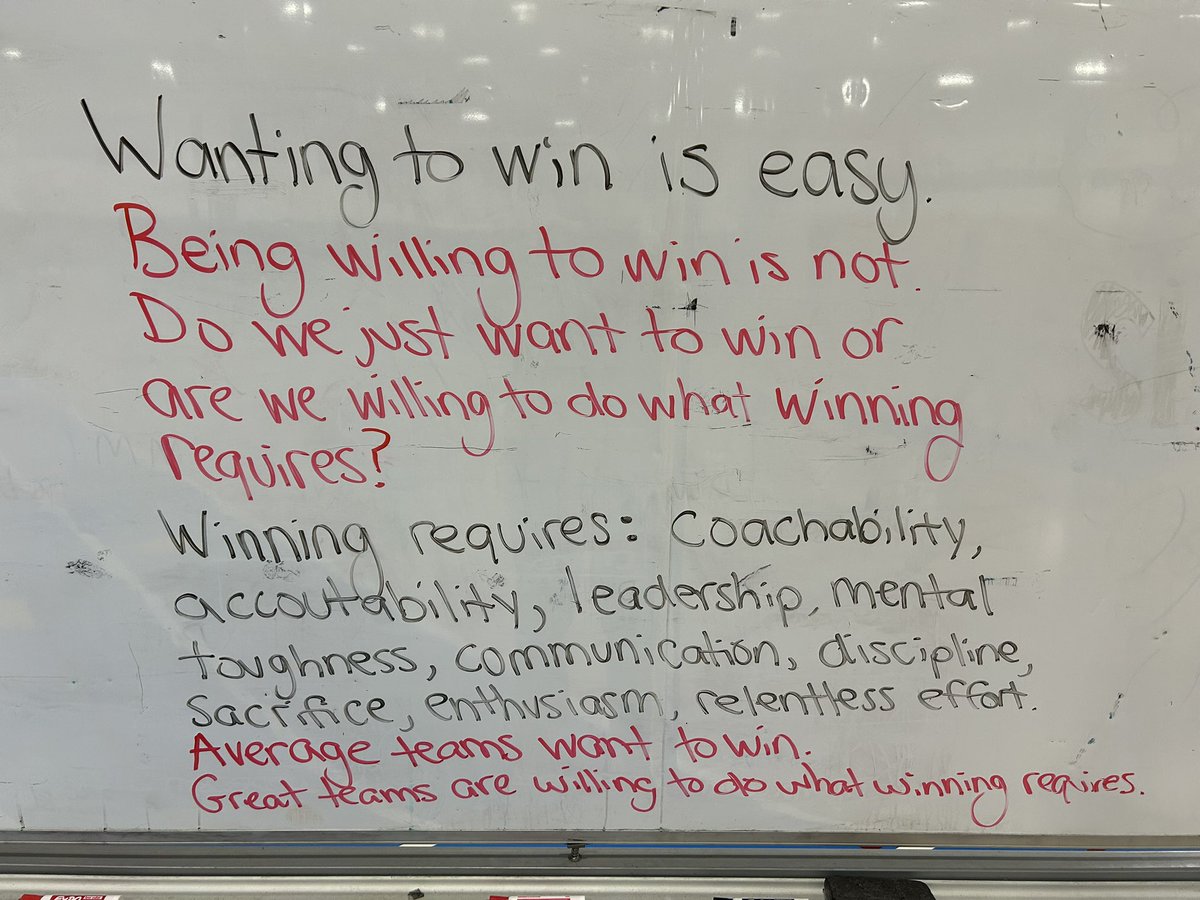 Wanting to win is easy.
Being willing to win is not.
Do we just want to win or
are we willing to do what winning
requires?
Winning requires: Coachability,
accoutability, leadership, mental
toughness, communication, discipline,
sacrifice, enthusiasm, relentless effort.
Average teams want to win.
Great teams are willing to do what winning requires.
EXPO